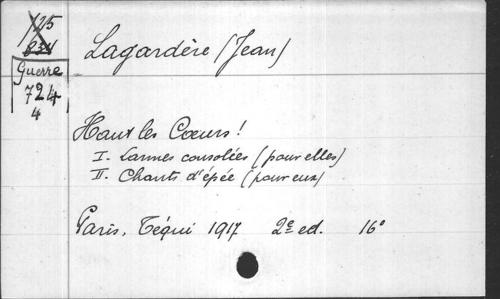 Lagardère (Jean)
Guerre
724
4
Haut les Cœurs!
I. Larmes consolées (pour elles)
II. Chants d'épée (pour eux)
Paris, Téqui 1917 2e ed. 16°